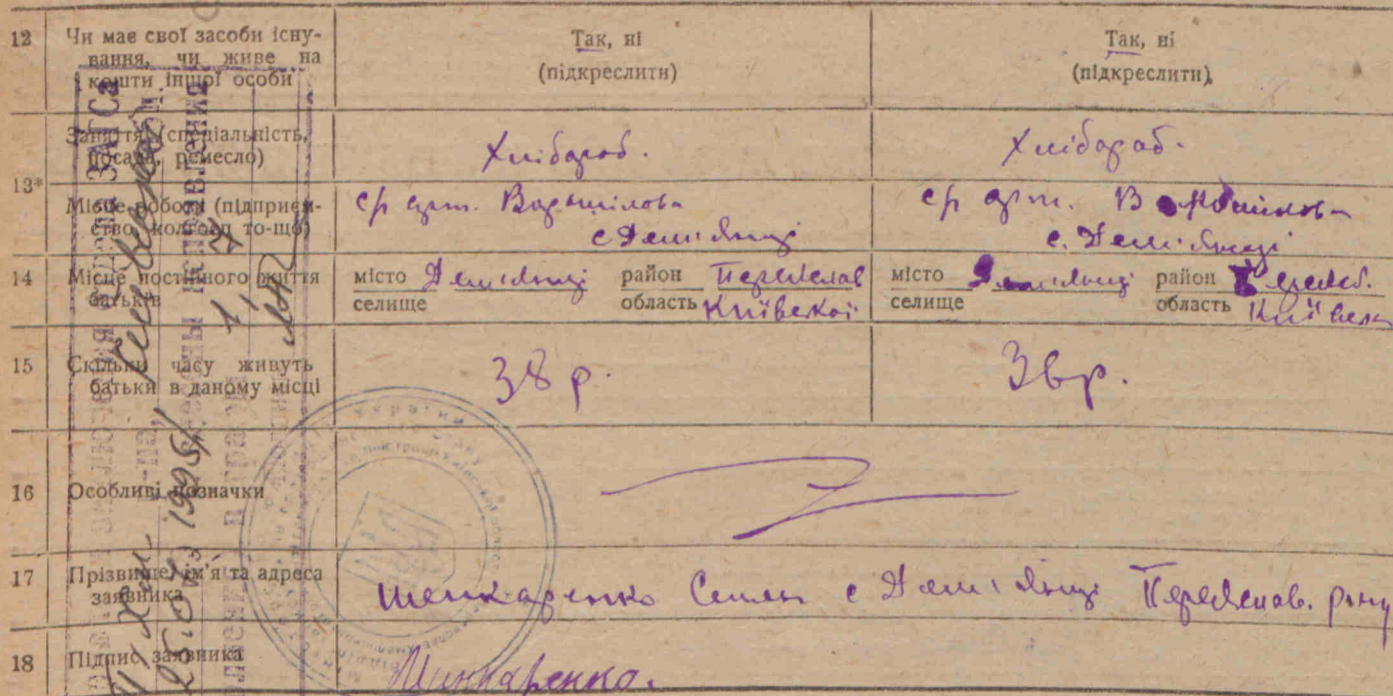 12 Чи має свої засоби існування, чи живе на кошти іншої особи Так, ні (підкреслити) Так, ні (підкреслити)
Заняття (спеціальність, посада, ремесло) Хлібороб. Хлібороб.
13* Місце роботи (підприємство, колгосп то-що) с/г арт. Ворошилова с. Дем'янці с/г арт. с. Дем'янці
14 Місце постійного життя батьків місто селище Дем'янці район область Переяслав Київської місто селище Дем'янці район область
15 Скільки часу живуть батьки в даному місці 38 р. 36 р.
16 Особливі позначки
17 Прізвище, ім'я та адреса заявника Шинкаренко Семен с Дем'янці Переяслав. р-ну
18 Підпис заявника Шинкаренко.
ЗАГСа
исправления
25.04 1995